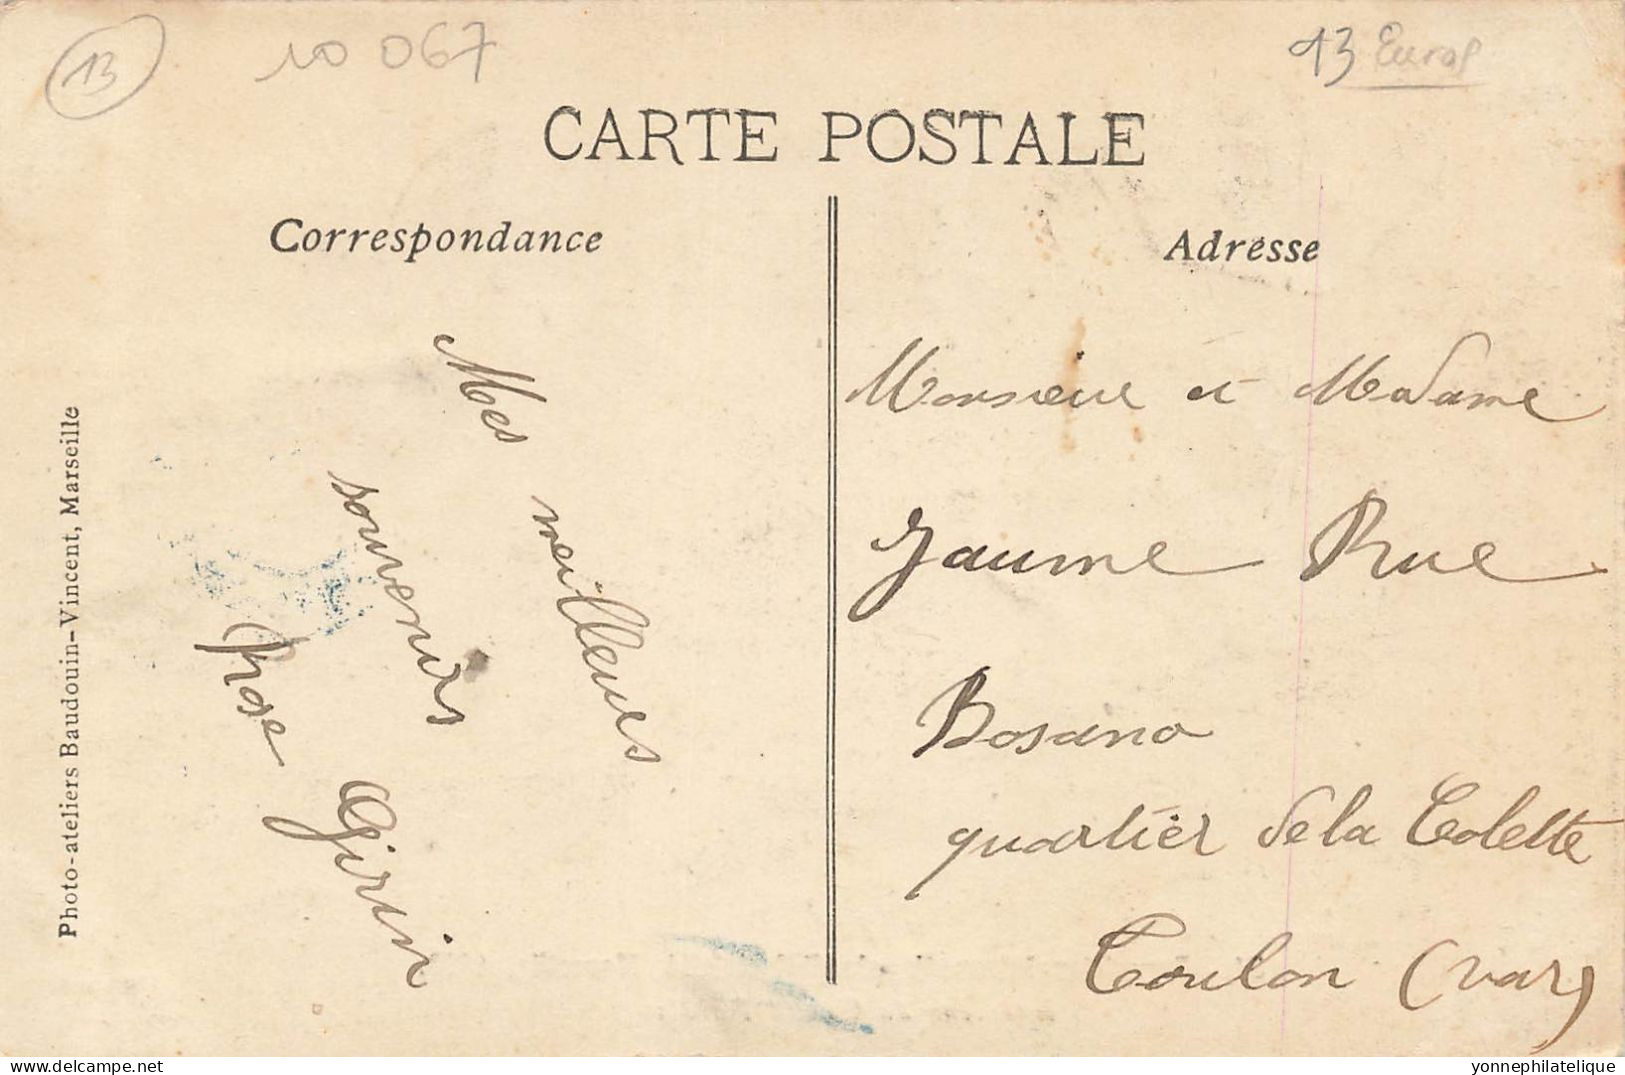 13
10 067
13 Euros
CARTE POSTALE
Correspondance
Adresse
Mes meilleurs
souvenirs
Rose Girin
Monsieur et Madame
Jaume Rue
Bosano
quartier de la Colette
Toulon (Var)
Photo-ateliers Baudouin-Vincent, Marseille
www.delcampe.net
yonnephilatelique